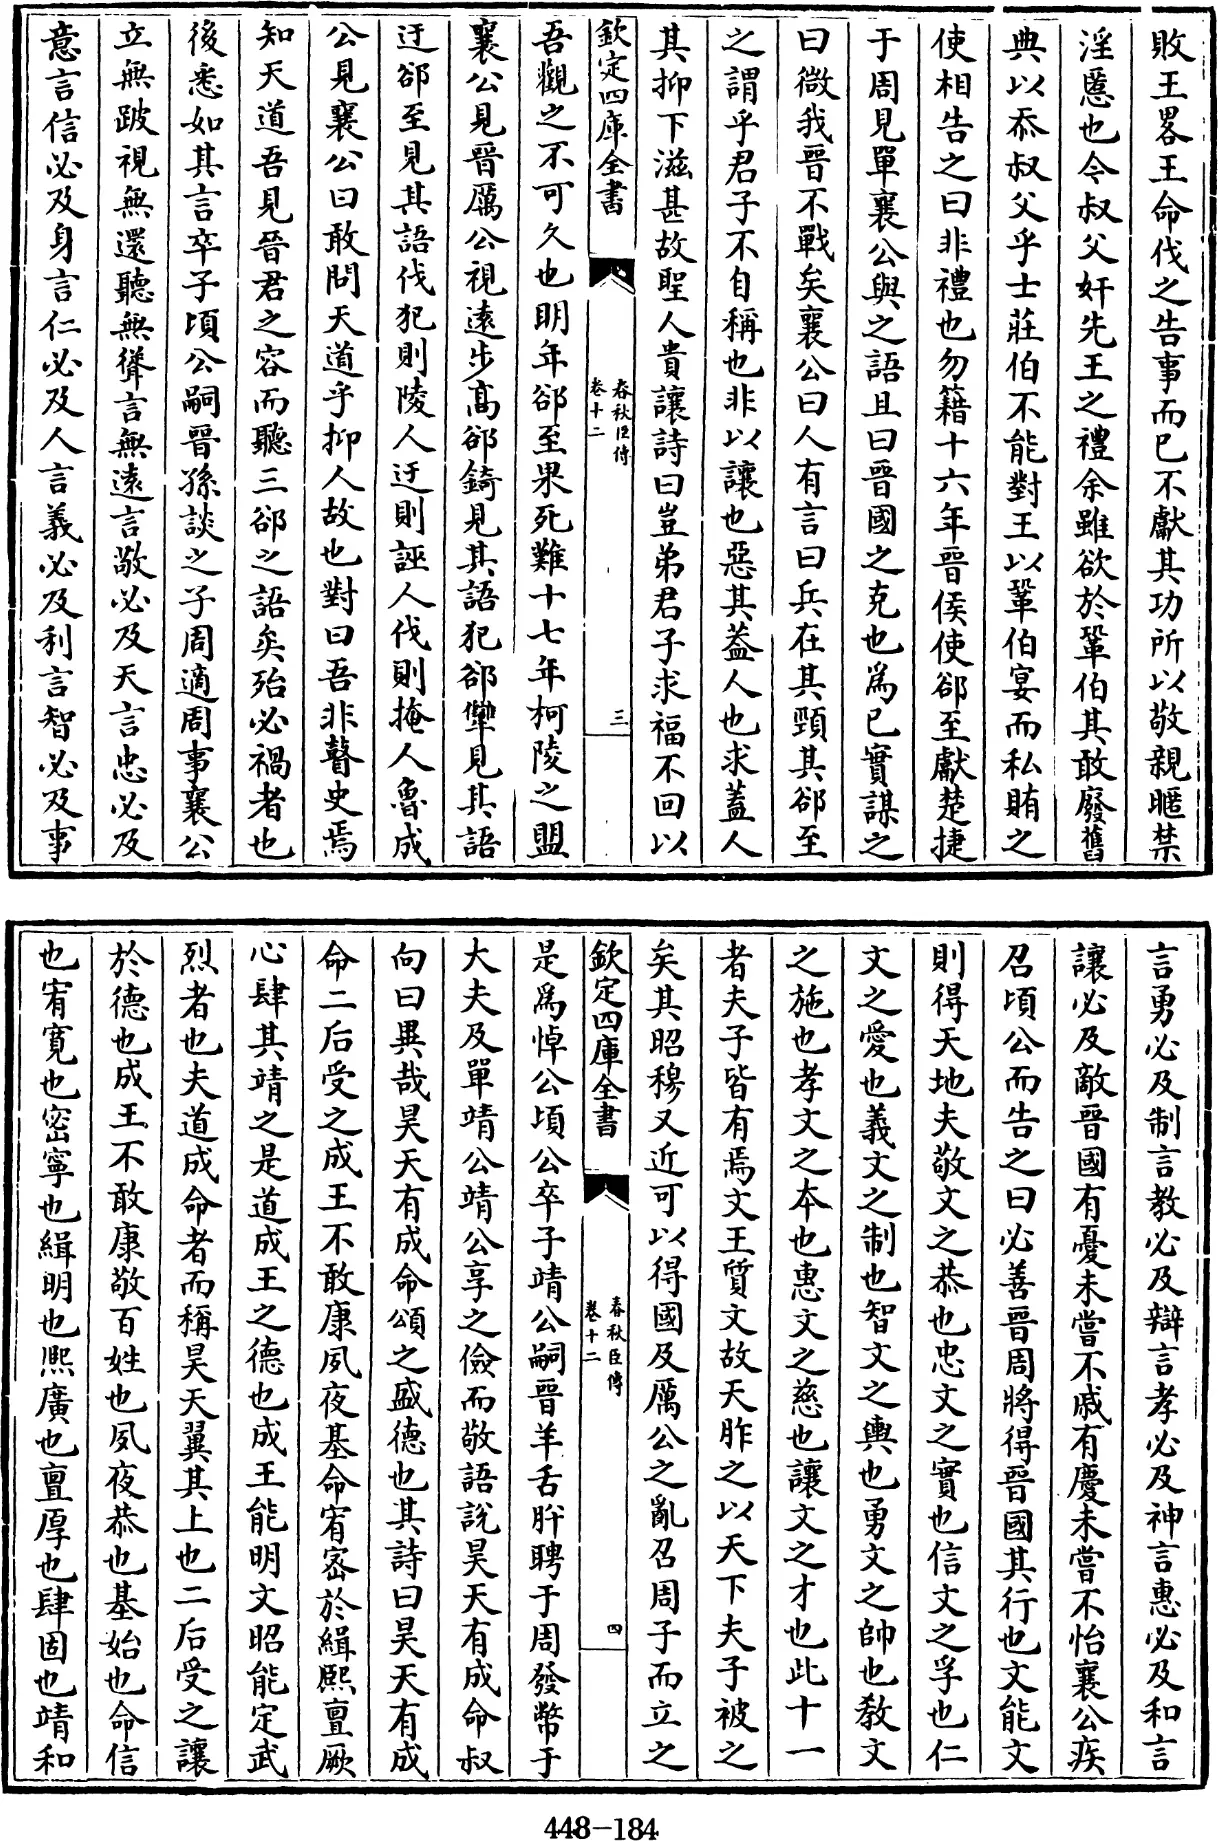 敗王畧王命伐之告事而已不獻其功所以敬親暱禁
淫慝也今叔父奸先王之禮余雖欲於鞏伯其敢廢舊
典以忝叔父乎士莊伯不能對王以鞏伯宴而私賄之
使相告之曰非禮也勿籍十六年晉侯使郤至獻楚捷
于周見單襄公與之語且曰晉國之克也為已實謀之
曰微我晉不戰矣襄公曰人有言曰兵在其頸其郤至
之謂乎君子不自稱也非以讓也惡其葢人也求蓋人
其抑下滋甚故聖人貴讓詩曰豈弟君子求福不回以
欽定四庫全書
春秋臣傳
卷十二
三
吾觀之不可久也明年郤至果死難十七年柯陵之盟
襄公見晉厲公視遠步高郤錡見其語犯郤犨見其語
迂郤至見其語伐犯則陵人迂則誣人伐則掩人魯成
公見襄公曰敢問天道乎抑人故也對曰吾非瞽史焉
知天道吾見晉君之容而聽三郤之語矣殆必禍者也
後悉如其言卒子頃公嗣晉孫談之子周適周事襄公
立無跛視無還聽無聳言無遠言敬必及天言忠必及
意言信必及身言仁必及人言義必及利言智必及事
言勇必及制言教必及辯言孝必及神言惠必及和言
讓必及敵晉國有憂未嘗不戚有慶未嘗不怡襄公疾
召頃公而告之曰必善晉周將得晉國其行也文能文
則得天地夫敬文之恭也忠文之實也信文之孚也仁
文之愛也義文之制也智文之輿也勇文之帥也教文
之施也孝文之本也惠文之慈也讓文之才也此十一
者夫子皆有焉文王質文故天胙之以天下夫子被之
矣其昭穆又近可以得國及厲公之亂召周子而立之
欽定四庫全書
春秋臣傳
卷十二
四
是為悼公頃公卒子靖公嗣晉羊舌肸聘于周發幣于
大夫及單靖公靖公享之儉而敬語說昊天有成命叔
向曰異哉昊天有成命頌之盛德也其詩曰昊天有成
命二后受之成王不敢康夙夜基命宥密於緝熙亶厥
心肆其靖之是道成王之德也成王能明文昭能定武
烈者也夫道成命者而稱昊天翼其上也二后受之讓
於德也成王不敢康敬百姓也夙夜恭也基始也命信
也宥寬也密寧也緝明也熙廣也亶厚也肆固也靖和
448-184